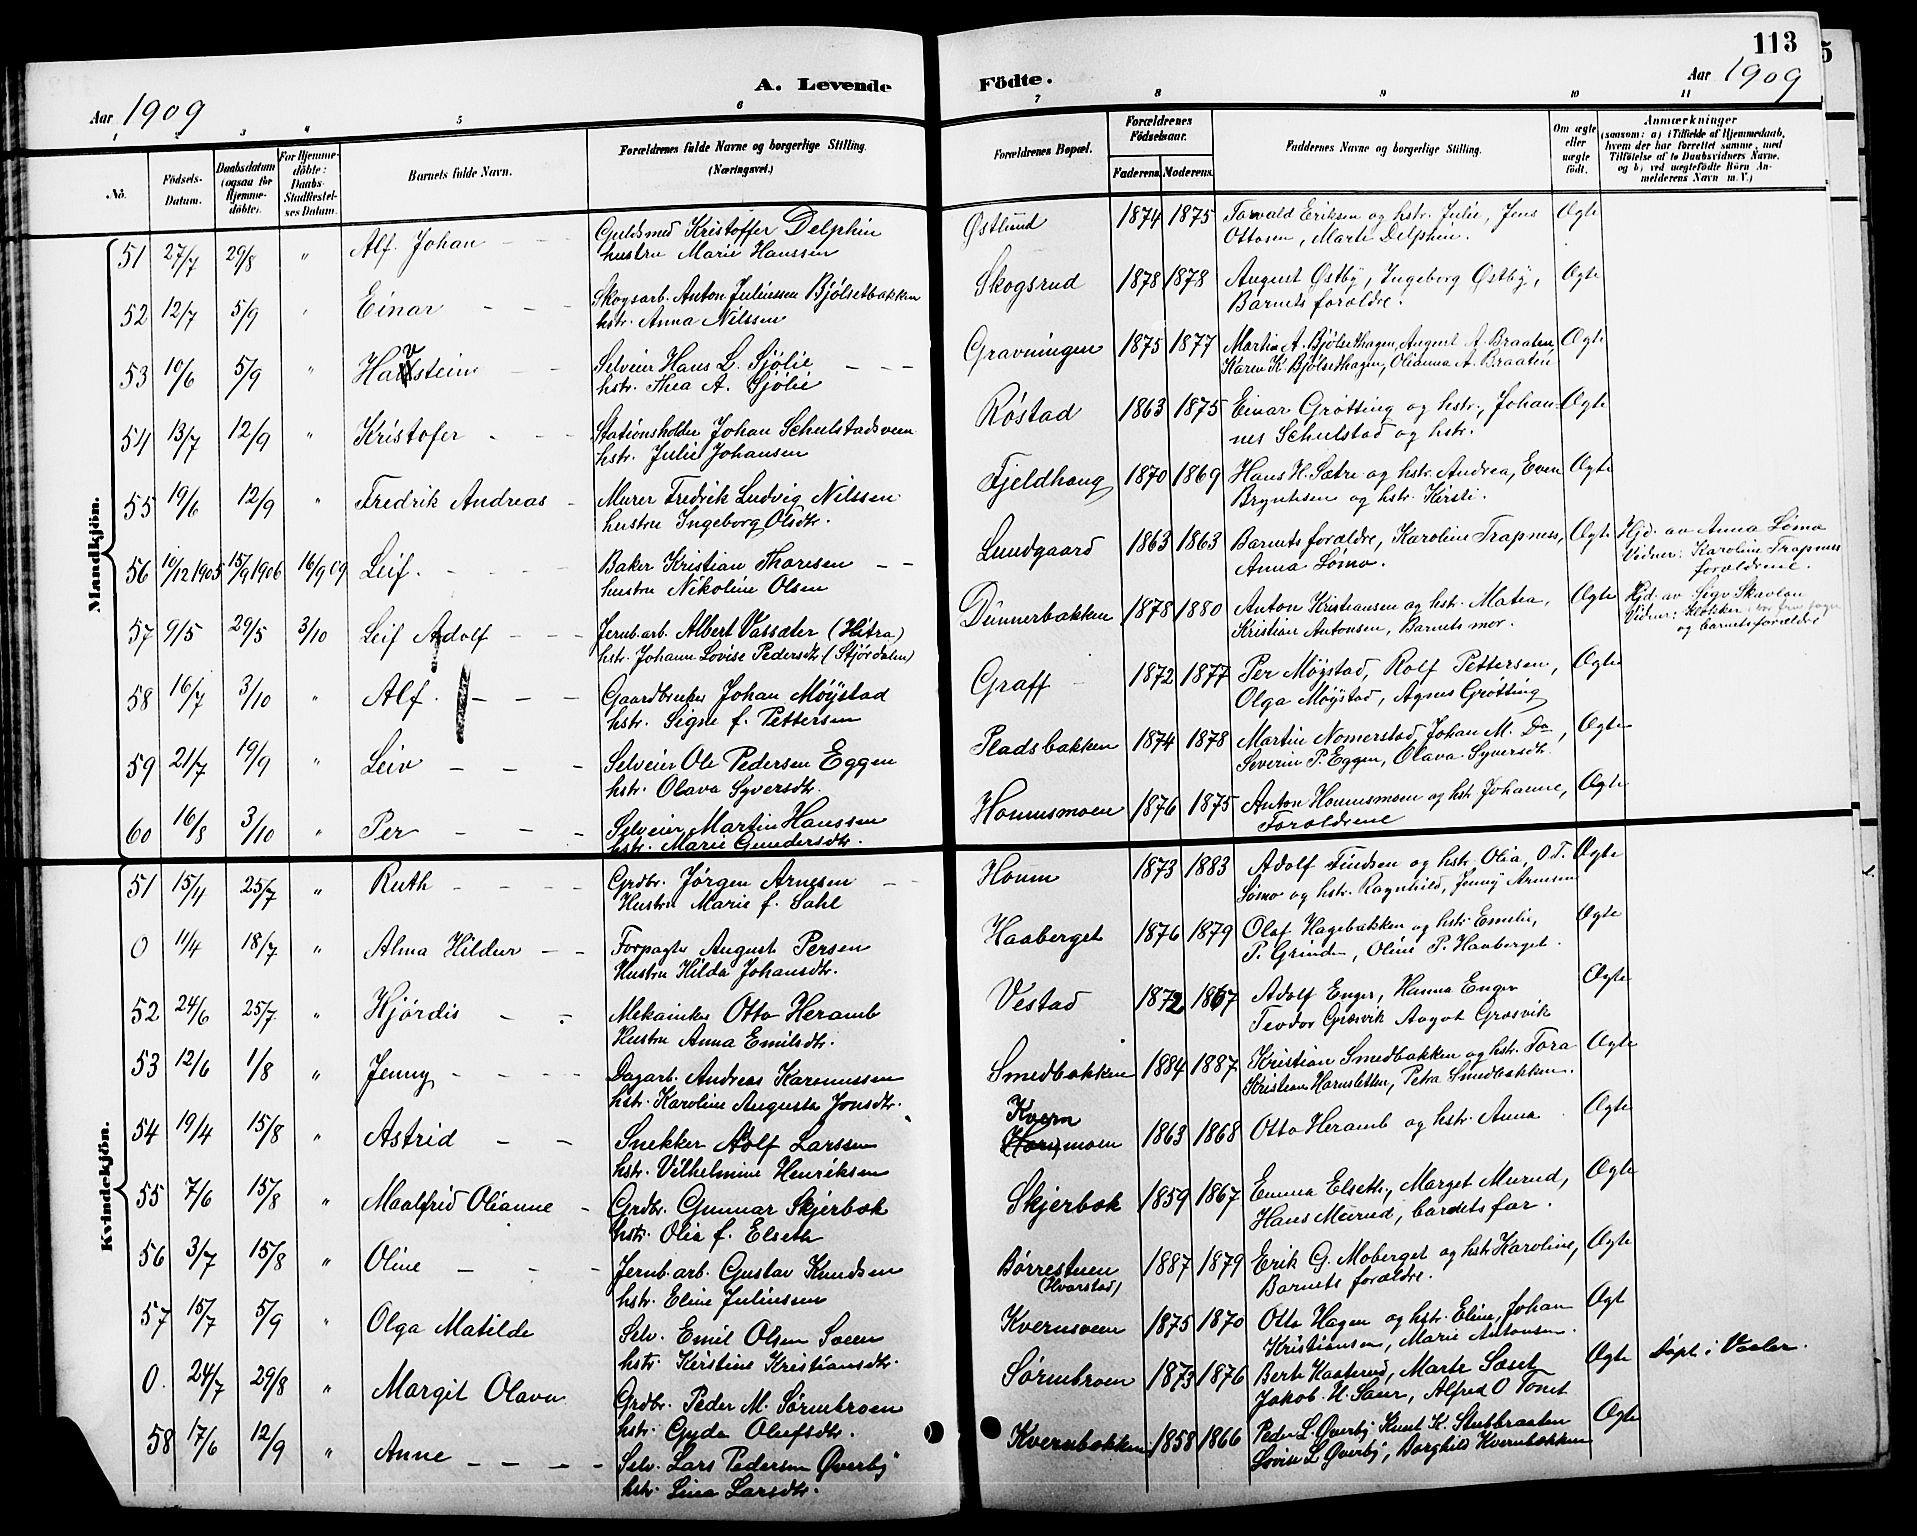 113
A. Levende Födte.
Aar 1909
Aar 1909
1 2 3 4 5 6 7 8 9 10 11
No.
Födsels-Datum.
Daabsdatum (ogsaa for Hjemme-döbte).
For Hjemme-döbte: Daabs-Stadfæstel-ses Datum.
Barnets fulde Navn.
Forældrenes fulde Navne og borgerlige Stilling.
(Næringsvei.)
Forældrenes Bopæl.
Forældrenes Födselsaar.
Faderens. Moderens.
Faddernes Navne og borgerlige Stilling.
Om ægte eller uægte födt.
Anmærkninger
(saasom: a) i Tilfælde af Hjemmedaab, hvem der har forrettet samme, med Tilföielse af to Daabsvidners Navne, og b) ved uægtefödte Börn Anmelderens Navn m. V.)
Mandkjön.
51 27/7 29/8 " Alf Johan Guldsmed Kristoffer Delphin Østlund 1874 1875 Torvald Eriksen og hstr. Julie, Jens Ægte
hustru Marie Hanssen Ottosen, Marte Delphin.
52 12/7 5/9 " Einar Skogsarb. Anton Juliussen Bjølsetbakken Skogsrud 1878 1878 August Østby, Ingeborg Østby, Ægte
hstr. Anna Nilssen Barnets forældre.
53 10/6 5/9 " Havstein Selveier Hans L. Sjølie Gravningen 1875 1877 Martin A. Bjølsethagen, August A. Braaten Ægte
hstr. Thea A. Sjølie Karen K. Bjølsethagen, Olianna A. Braaten
54 13/7 12/9 " Kristofer Stationsholder Johan Schulstadsveen Røstad 1863 1875 Einar Grøtting og hstr., Johan- Ægte
hstr. Julie Johansen nes Schulstad og hstr.
55 19/6 12/9 " Fredrik Andreas Murer Fredrik Ludvig Nilssen Fjeldhaug 1870 1869 Hans H. Sætre og hstr. Andrea, Even Ægte
hustru Ingeborg Olsdtr. Bryntesen og hstr. Kirsti.
56 10/12 1905 15/9 1906 16/9 09 Leif. Baker Kristian Thoresen Lundgaard 1863 1863 Barnets forældre, Karoline Trapness, Ægte Hjd. av Anna Lømo
hustru Nikoline Olsen Anna Lømo. Vidner: Karoline Trapness
forældrene.
57 9/5 29/5 3/10 Leif Adolf Jernb.arb. Albert Vassæter (Hitra) Dünnerbakken 1878 1880 Anton Kristiansen og hstr. Matea, Ægte Hjd. av Sigv. Skavlan
hstr. Johann Lovise Pedersdtr. (Stjørdalen) Kristian Antonsen, Barnets mor. Vidner: Klokker
og barnets forældre
58 16/7 3/10 " Alf. Gaardbruker Johan Møystad Graff 1872 1877 Per Møystad, Rolf Pettersen, Ægte
hstr. Signe f. Pettersen Olga Møystad, Agnes Grøtting
59 21/7 19/9 " Leiv Selveier Ole Pedersen Eggen Pladsbakken 1874 1878 Martin Nomerstad, Johan M. Do, Ægte
hstr. Olava Syversdtr. Severin P. Eggen, Olava Syversdtr.
60 16/8 3/10 " Per Selveier Martin Hanssen Hommsmoen 1876 1875 Anton Hommsmoen og hstr Johanne, Ægte
hstr. Marie Gundersdtr. Forældrene
Kvindekjön.
51 15/4 25/7 " Ruth Grdbr. Jørgen Arnesen Houm 1873 1883 Adolf Findsen og hstr. Olia, O.T. Ægte
Hustru Marie f. Dahl Lømo og hstr. Ragnhild, Jenny Arnesen
0 11/4 18/7 " Alma Hildur Forpagter August Persen Haaberget 1876 1879 Olaf Hagebakken og hstr. Emelie, Ægte
Hustru Hilda Johansdtr. P. Grinden, Oline P. Haaberget.
52 24/6 25/7 " Hjørdis Mekaniker Otto Heramb Vestad 1872 1867 Adolf Enger, Hanna Enger Ægte
Hustru Anna Emilsdtr. Teodor Græsvik Aagot Græsvik
53 12/6 1/8 " Jenny Dagarb. Andreas Karenussen Smedbakken 1884 1887 Kristian Smedbakken og hstr. Tora Ægte
hstr. Karoline Augusta Jonsdtr. Kristian Harnsletten, Petra Smedbakken.
54 19/4 15/8 " Astrid Snekker Adolf Larssen Kvernmoen 1863 1868 Otto Heramb og hstr. Anna Ægte
hstr. Vilhelmine Henriksen
55 7/6 15/8 " Maalfrid Olianne Grdbr. Gunnar Skjerbæk Skjerbæk 1859 1867 Emma Elseth, Marget Murud, Ægte
hstr. Olia f. Elseth Hans Murud, barnets far.
56 3/7 15/8 " Oline Jernb.arb. Gustav Knudsen Børrestuen 1887 1879 Erik G. Moberget og hstr. Karoline, Ægte
hstr. Eline Juliussen (Hvarstad) Barnets forældre.
57 15/7 5/9 " Olga Matilde Selv. Emil Olsen Sveen Kvernsveen 1875 1870 Otto Hagen og hstr. Eline, Johan Ægt
hstr. Kirstine Kristiansdtr. Kristiansen, Marie Antonsen.
0. 24/7 29/8 " Margit Olava Grdbr. Peder M. Sørmbroen Sørmbroen 1873 1876 Berte Kaaterud, Marte Sæset Ægte Døpt i Vaaler.
hstr. Gyda Olufsdtr. Jakob H. Saur, Alfred O Tonet
58 17/6 12/9 " Anne Selv. Lars Pedersen Øverby Kvernbækken 1858 1866 Peder L. Øverby, Knut K. Stubbraaten Ægte
hstr. Lina Larsdtr. Lovise L Øverby, Borghild Kvernbækken